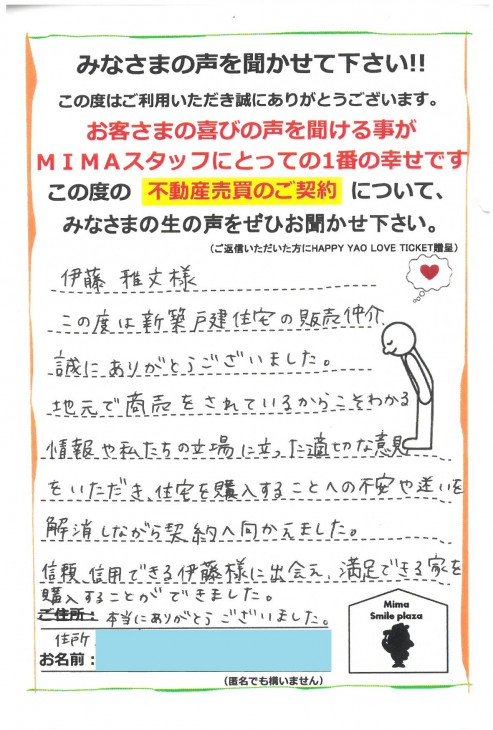 みなさまの声を聞かせて下さい!!
この度はご利用いただき誠にありがとうございます。
お客さまの喜びの声を聞ける事が
MIMAスタッフにとっての1番の幸せです
この度の 不動産売買のご契約 について、
みなさまの生の声をぜひお聞かせ下さい。
(ご返信いただいた方にHAPPY YAO LOVE TICKET贈呈)
伊藤 雅文様
この度は新築戸建住宅の販売仲介
誠にありがとうございました。
地元で商売をされているからこそわかる
情報や私たちの立場に立った適切な意見
をいただき、住宅を購入することへの不安や迷いを
解消しながら契約へ向かえました。
信頼、信用できる伊藤様に出会え、満足できる家を
購入することができました。
ご住所: 本当にありがとうございました。
住所:
お名前:
(匿名でも構いません)
Mima
Smile plaza